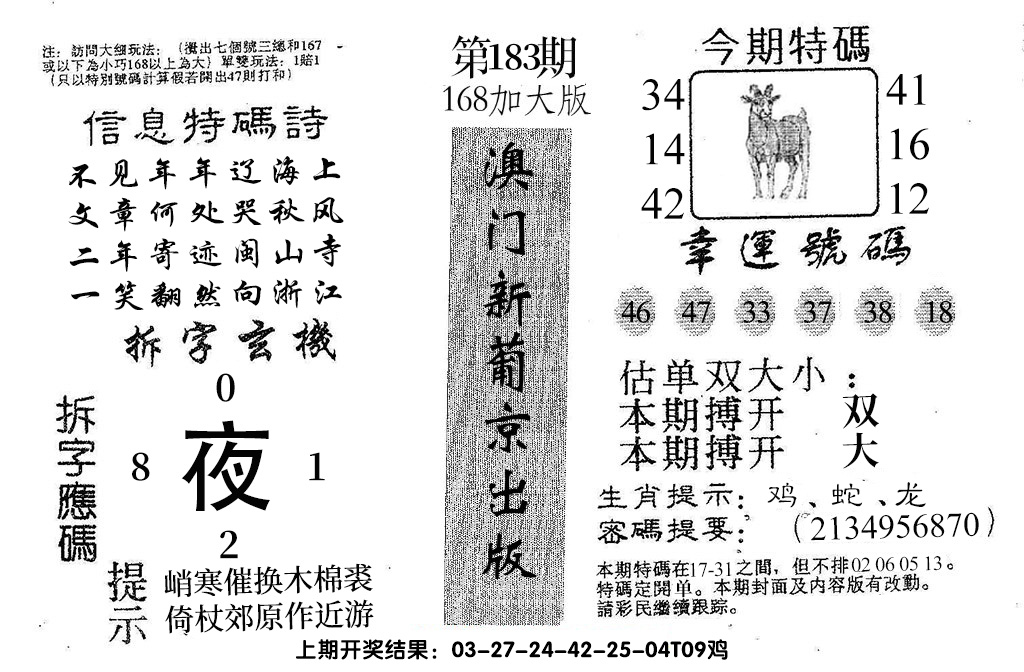 注：訪問大细玩法：（攪出七個號三總和167
或以下為小巧168以上為大）單雙玩法：1賠1
（只以特別號碼計算假若開出47則打和）
信息特碼詩
不见年年辽海上
文章何处哭秋风
二年寄迹闽山寺
一笑翻然向浙江
拆字玄機
拆字應碼
0
8 夜 1
2
提示
峭寒催换木棉裘
倚杖郊原作近游
第183期
168加大版
澳门新葡京出版
今期特碼
34 41
14 16
42 12
幸運號碼
46 47 33 37 38 18
估单双大小：
本期搏开 双
本期搏开 大
生肖提示：鸡、蛇、龙
密碼提要：（2134956870）
本期特碼在17-31之間，但不排02 06 05 13。
特碼定開单。本期封面及内容版有改動。
請彩民繼續跟踪。
上期开奖结果：03-27-24-42-25-04T09鸡